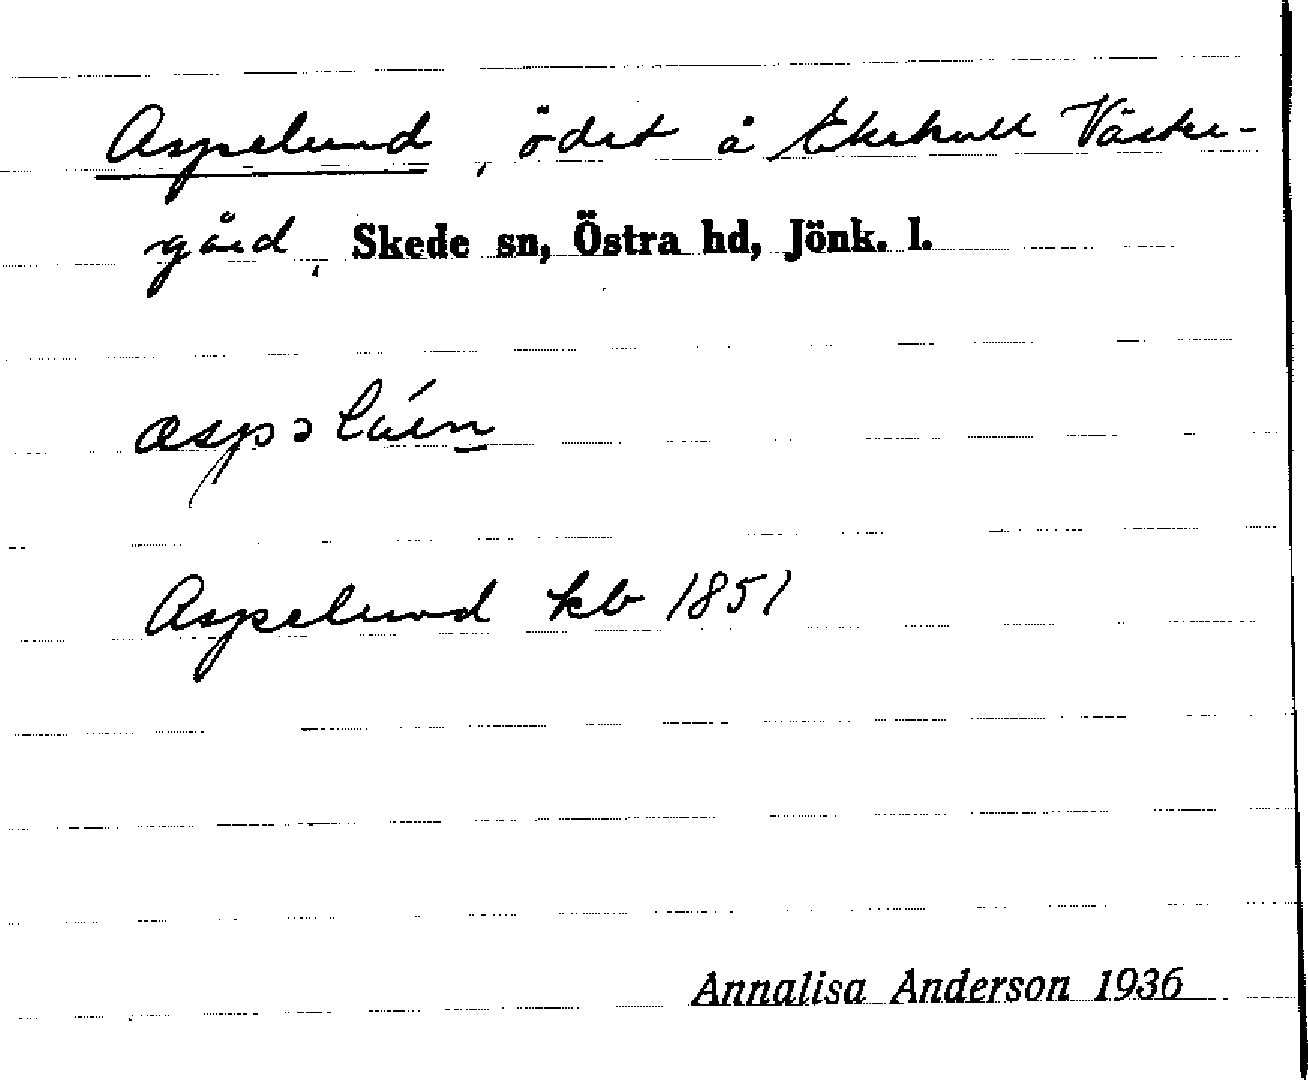 Aspelund, ödet å Ekehult Väster-
gård, Skede sn, Östra hd, Jönk. l.
Aspelund kb 1851
Annalisa Anderson 1936